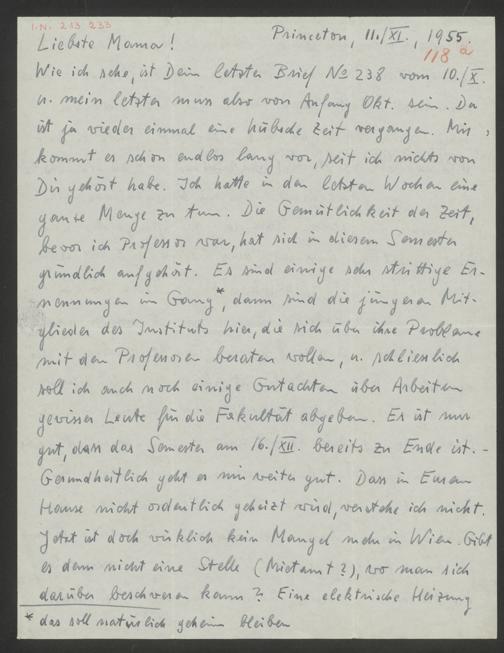 I.N. 213 233
Princeton, 11./XI., 1955.
118 a
Liebste Mama!
Wie ich sehe, ist Dein letzter Brief No 238 vom 10./X.
u. mein letzter muss also von Anfang Okt. sein. Da
ist ja wieder einmal eine hübsche Zeit vergangen. Mir
kommt es schon endlos lang vor, seit ich nichts von
Dir gehört habe. Ich hatte in den letzten Wochen eine
ganze Menge zu tun. Die Gemütlichkeit der Zeit,
bevor ich Professor war, hat sich in diesem Semester
gründlich aufgehört. Es sind einige sehr strittige Er-
nennungen im Gang*, dann sind die jüngeren Mit-
glieder des Instituts hier, die sich über ihre Probleme
mit den Professoren beraten wollen, u. schliesslich
soll ich auch noch einige Gutachten über Arbeiten
gewisser Leute für die Fakultät abgeben. Es ist nur
gut, dass das Semester am 16./XII. bereits zu Ende ist. -
Gesundheitlich geht es mir weiter gut. Dass in Eurem
Hause nicht ordentlich geheizt wird, verstehe ich nicht.
Jetzt ist doch wirklich kein Mangel mehr in Wien. Gibt
es denn nicht eine Stelle (Mietamt?), wo man sich
darüber beschweren kann? Eine elektrische Heizung
* das soll natürlich geheim bleiben